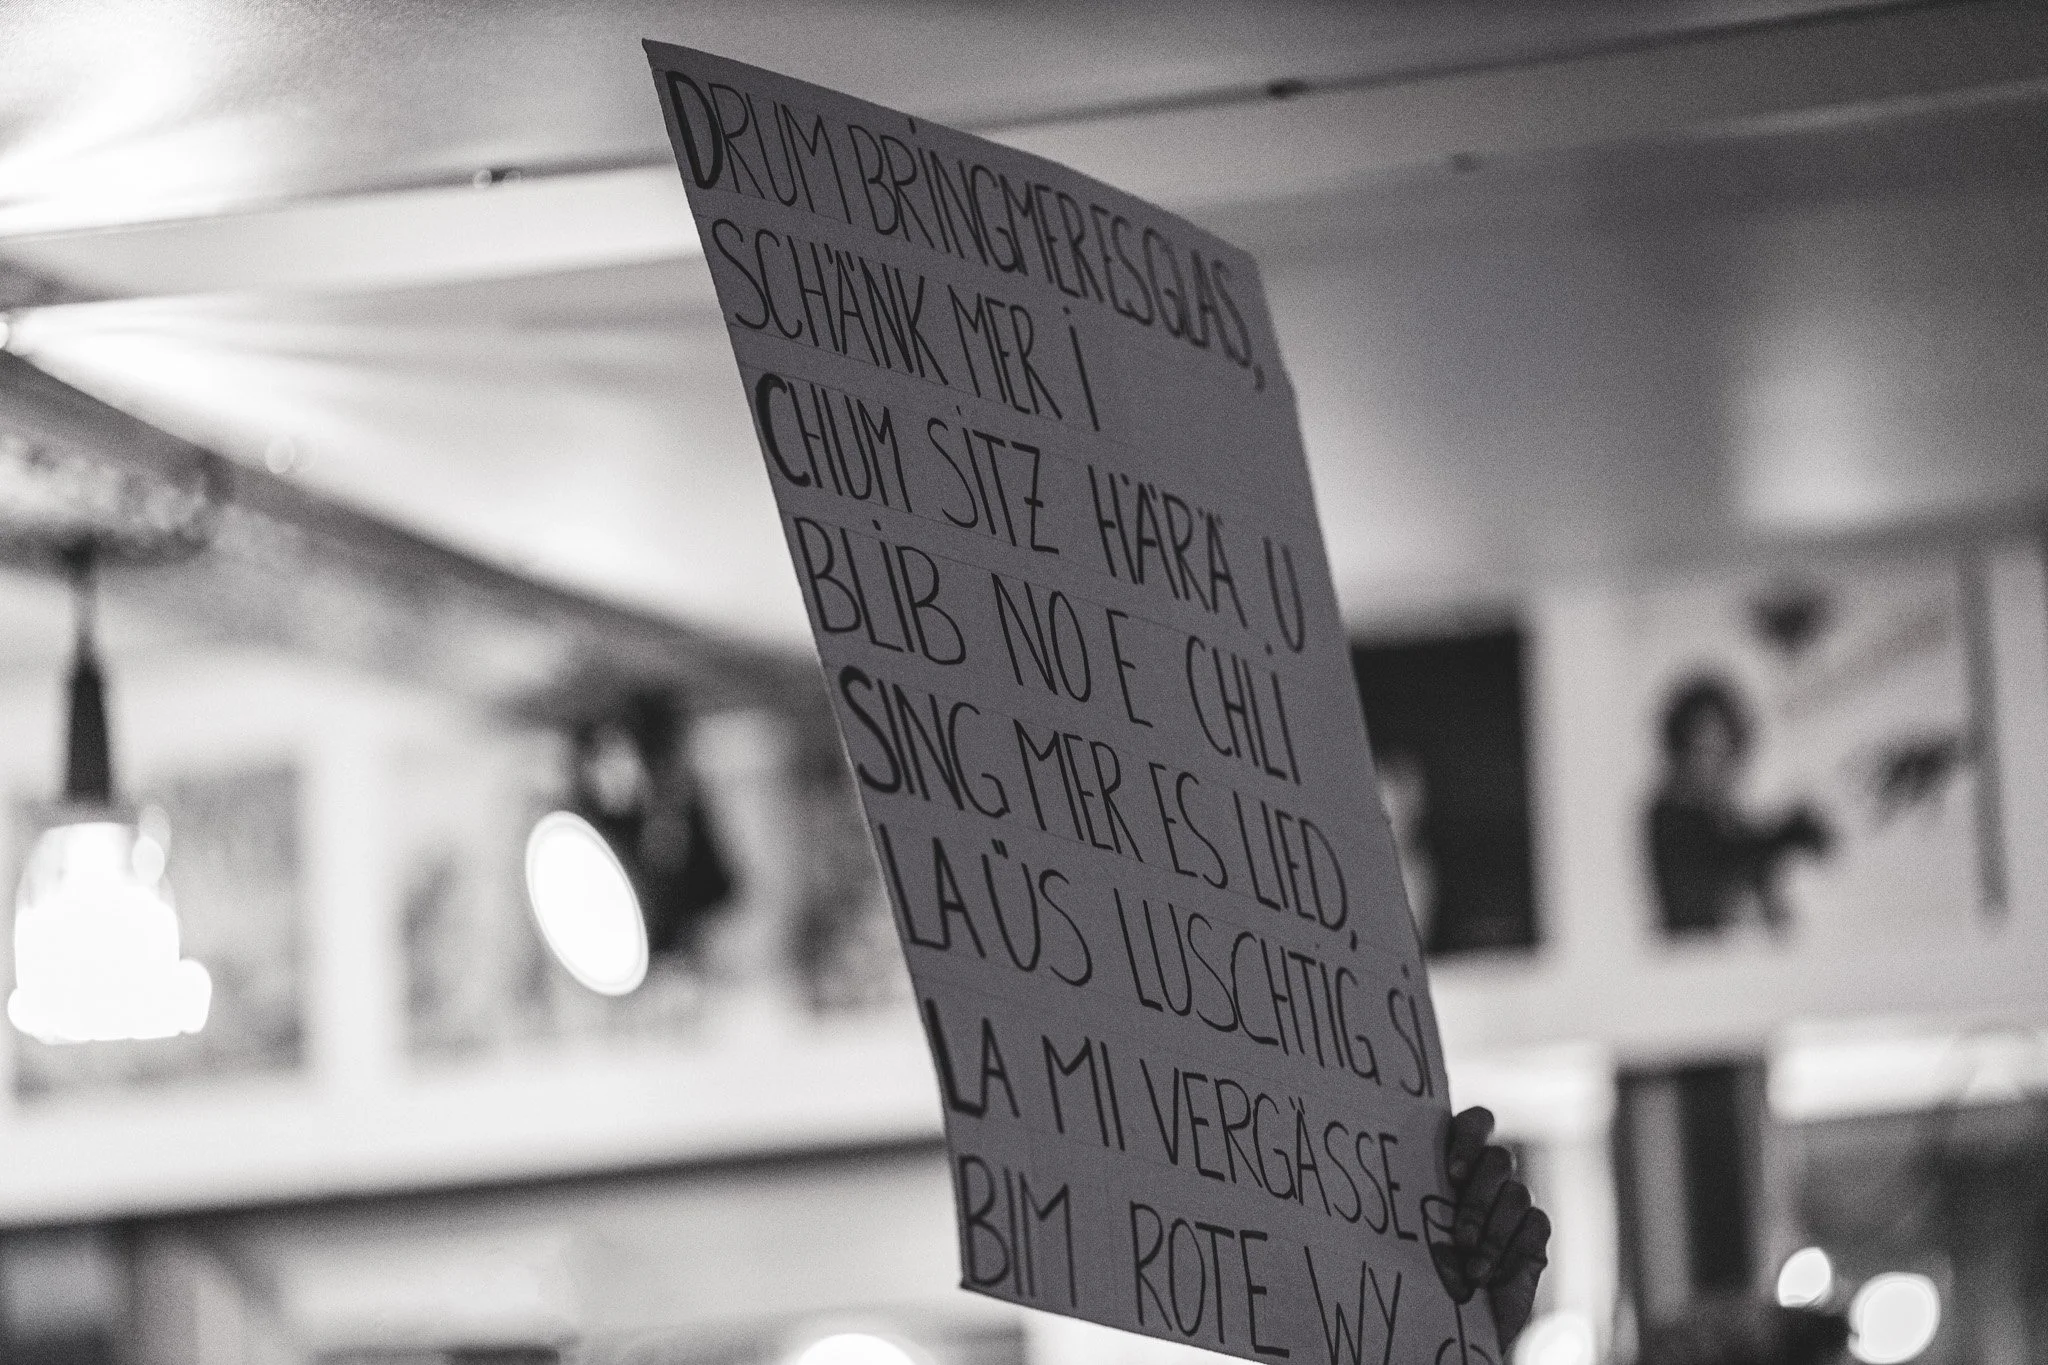 DRUM BRING MER ES GLAS,
SCHÄNK MER I
CHUM SITZ HÄRÄ U
BLIB NO E CHLI
SING MER ES LIED,
LA ÜS LUSCHTIG SI
LA MI VERGÄSSE
BIM ROTE WY